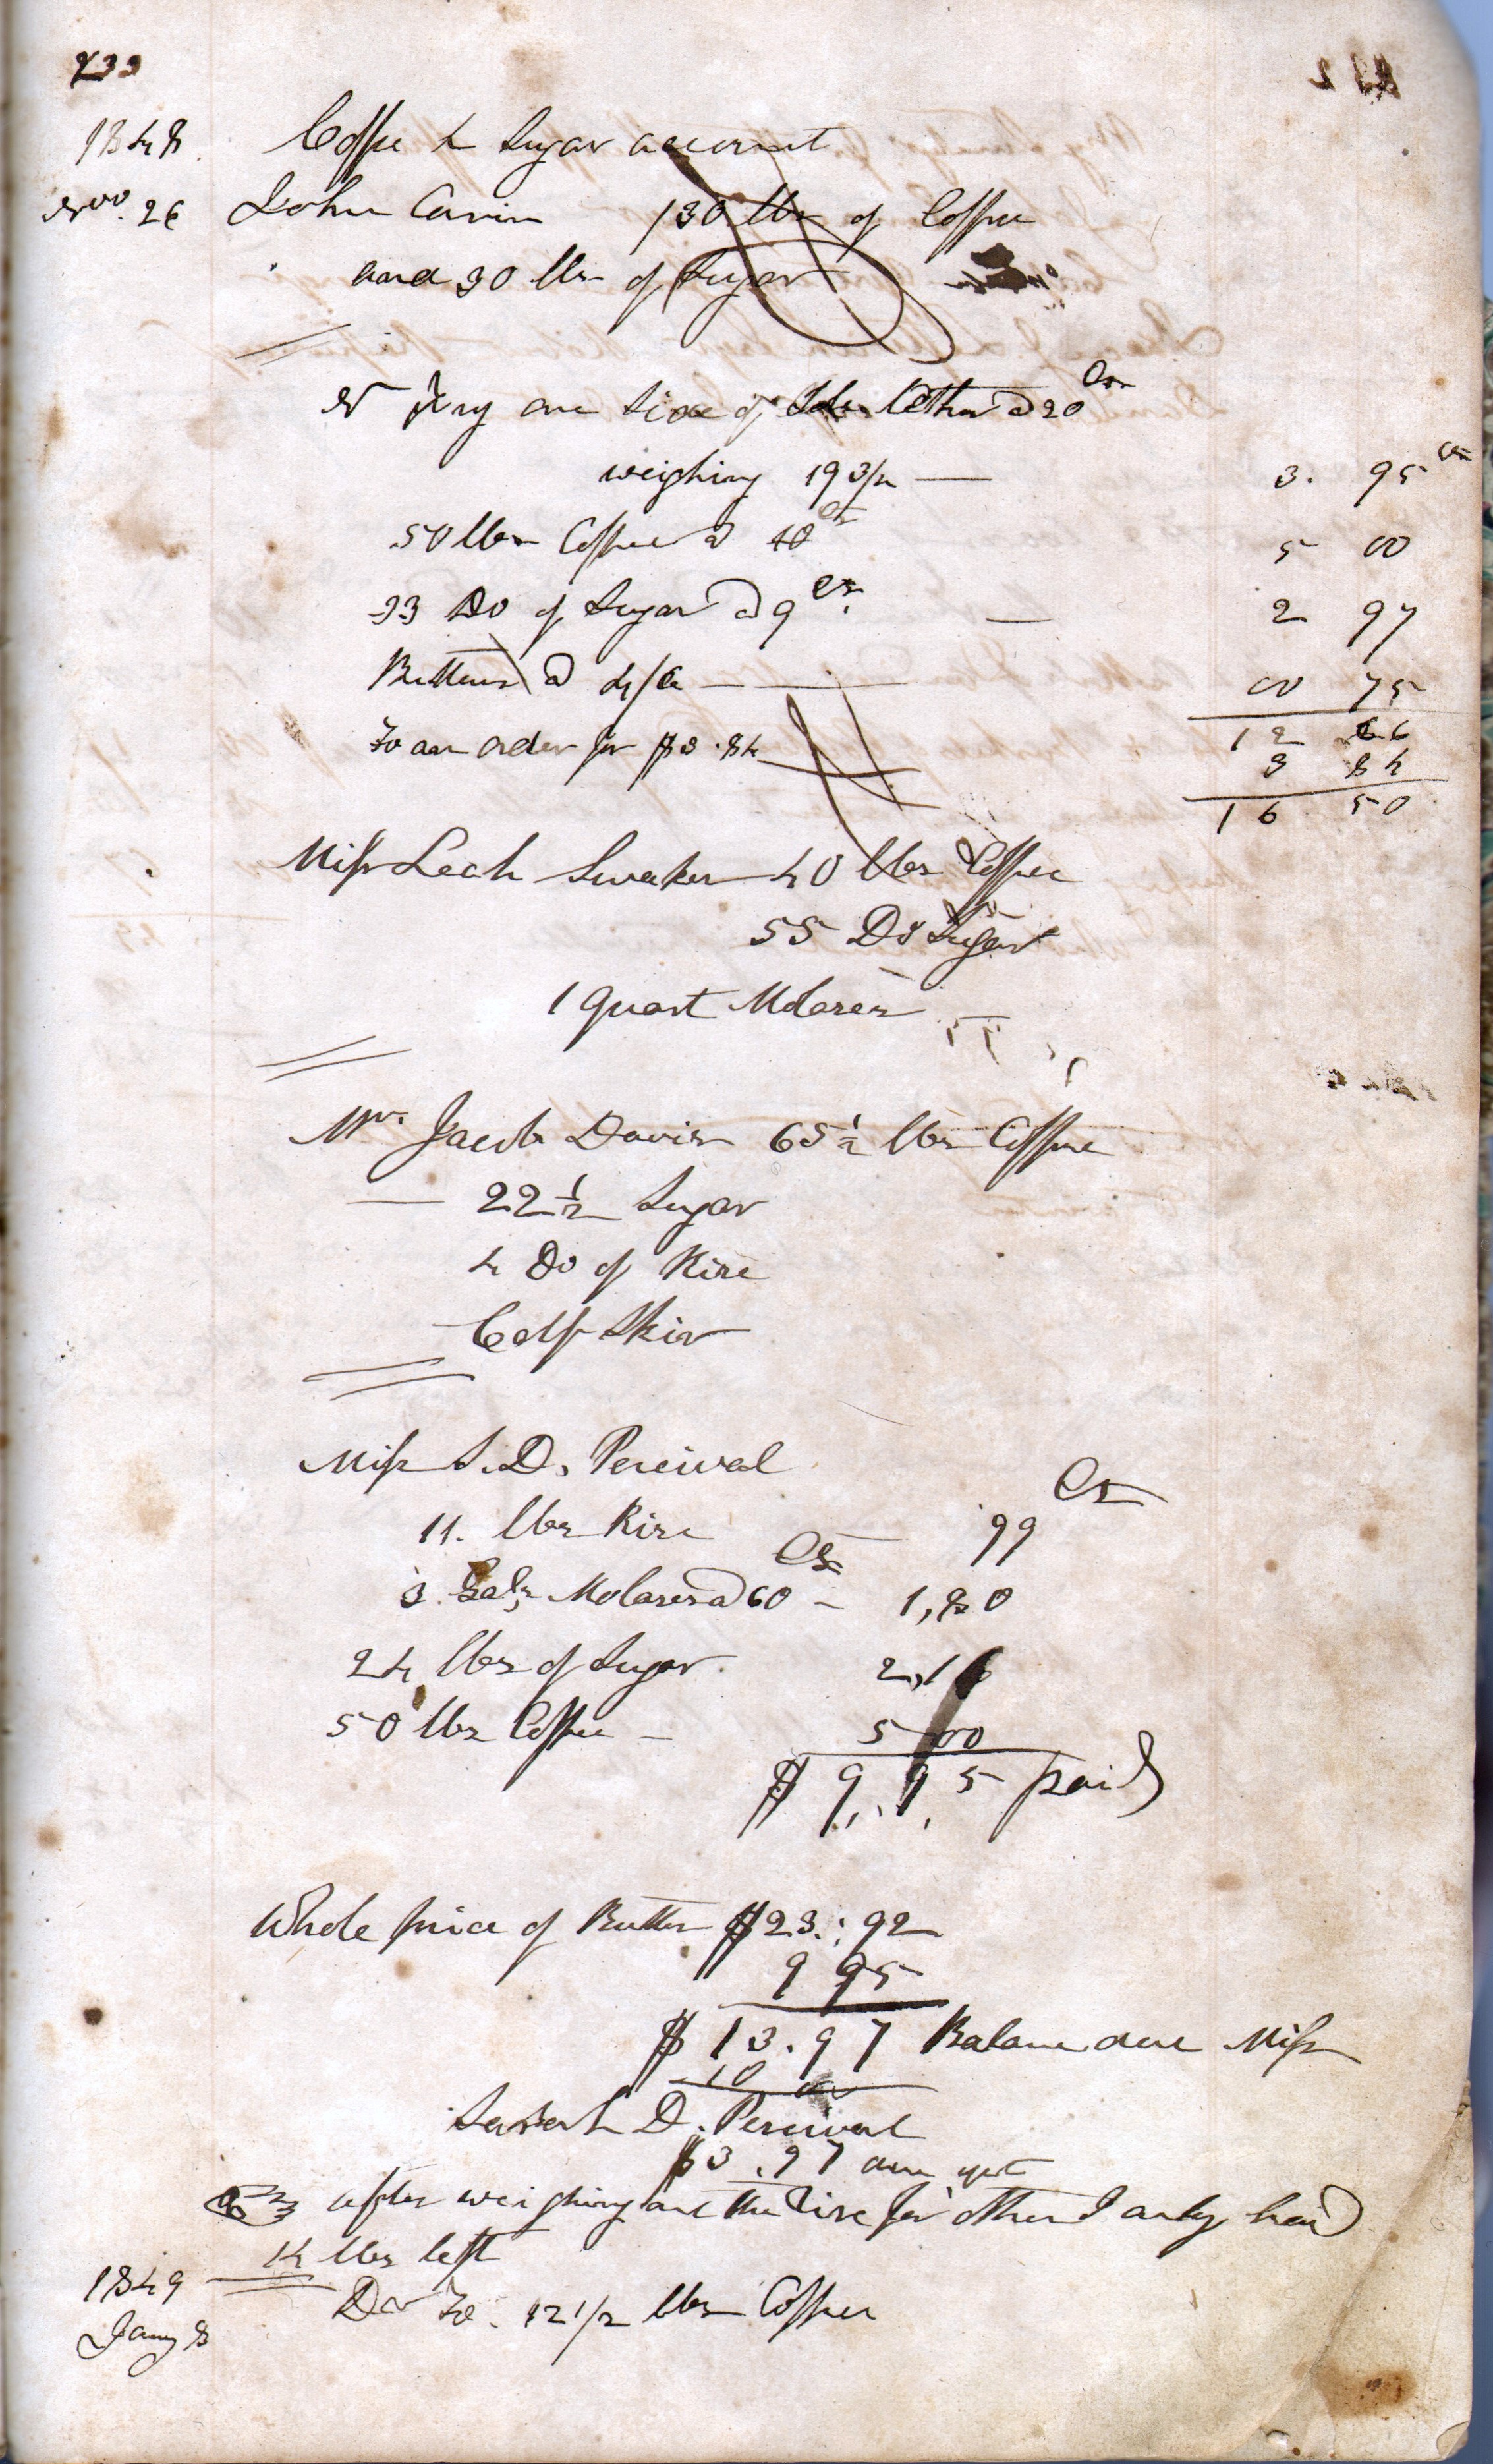 233
1848 Coffee & Sugar account
Nov. 26 John Carvin 130 lbs of Coffee
and 30 lbs of Sugar
one Side of Sole lether @ 20 Cts
weighing 19 3/4 — 3. 95 cts
50 lbs Coffee @ 10 cts 5 00
33 Do of Sugar @ 9 cts. — 2 97
Buttens @ 4/6 — 00 75
12 66
To an order for $3.84 3 84
16 50
Miss Leah Sweaker 40 lbs Coffee
55 Do Sugar
1 Quart Molases
Mrs Jacob Davis 65 1/2 lbs Coffee
— 22 1/2 Sugar
4 Do of Rise
Calf Skin
Miss S. D. Percival
Cts
11. lbs Rise 99
3. Gals Molases @ 60 Cts - 1,80
24 lbs of Sugar. 2,16
50 lbs Coffee — 5 00
$ 9,,95 paid
Whole price of Butter $23.:92
9 95
$ 13.97 Balance due Miss
10 00
Sarah D. Percival
$3.97 due yet
after weighing out the Rise for others I only had
14 lbs left
1849
Jany 8 Dr To. 12 1/2 lbs Coffee